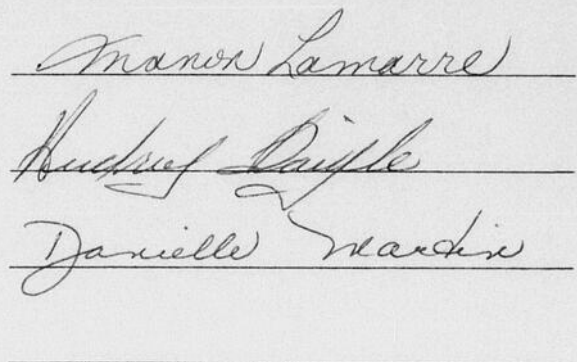 Manon Lamarre
Audrey Daigle
Danielle Martin